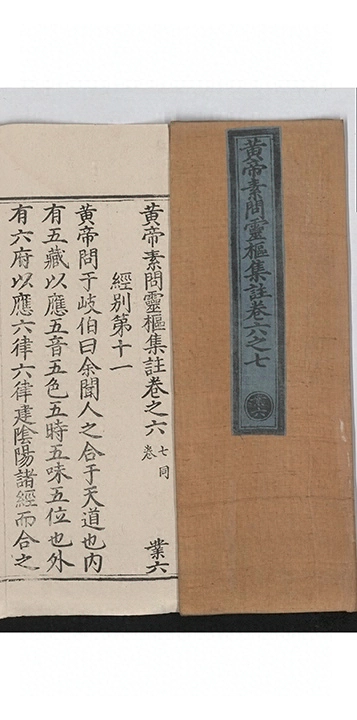 黃帝素問靈樞集註卷六之七
黃帝素問靈樞集註卷之六 七同卷 業六
經別第十一
黃帝問于岐伯曰余聞人之合于天道也內
有五藏以應五音五色五時五味五位也外
有六府以應六律六律建陰陽諸經而合之